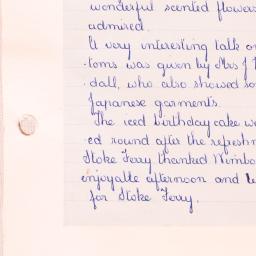 wonderful scented flowers
admired.
A very interesting talk on
-toms was given by Mrs J
-dall, who also showed so
Japanese garments.
The iced birthday cake w
-ed round after the refresh
Stoke Ferry thanked Wimbo
enjoyable afternoon and le
for Stoke Ferry.